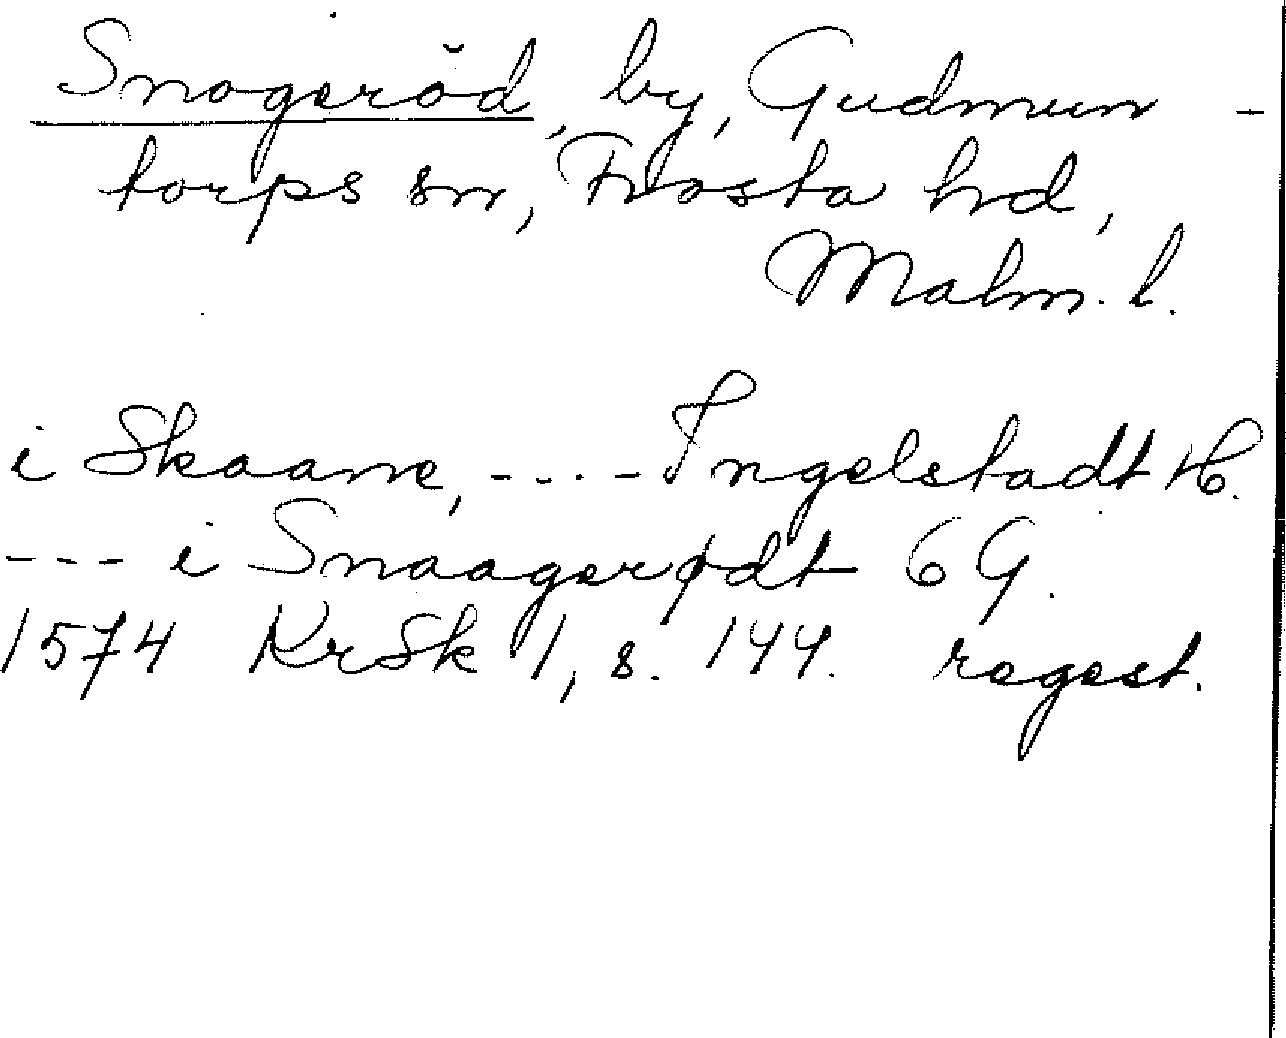 Snogeröd, by, Gudmun-
torps sn, Frosta hd,
Malm. l.
i Skaane, -...- Ingelstadt H.
--- i Snaagerødt 6 G.
1574 KrSk 1, s. 144. regest.